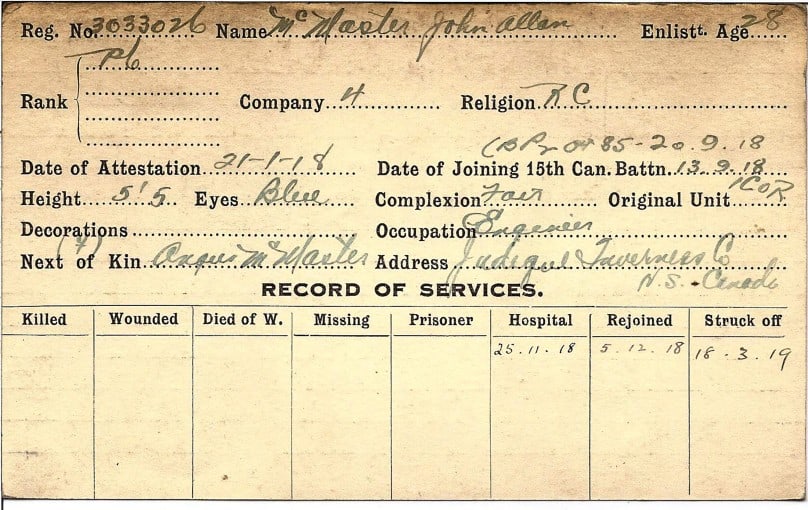 Reg. No. 3033026 Name Mc Master John Allan Enlistt. Age 28
Pte
Rank Company 4 Religion R C
85-20.9.18
Date of Attestation 21-1-18 Date of Joining 15th Can. Battn. 13.9.18
Height 5'5 Eyes Blue Complexion Fair Original Unit 1COR
Decorations Occupation Engineer
(F)
Next of Kin Angus McMaster Address Judique Inverness Co
N.S. - Canada
RECORD OF SERVICES.
Killed Wounded Died of W. Missing Prisoner Hospital Rejoined Struck off
25.11.18 5.12.18 18.3.19